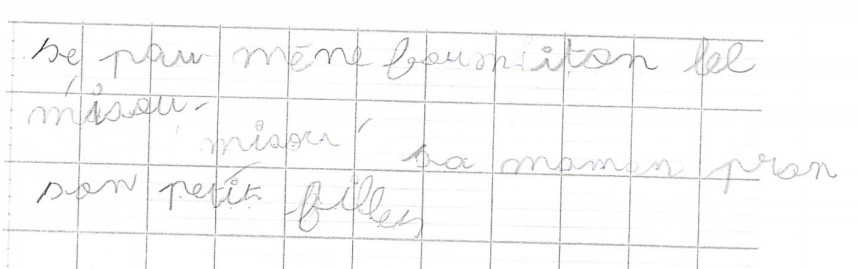 sé pour méne fourmiton lel
misou-
misou sa maman pran
son petit filles